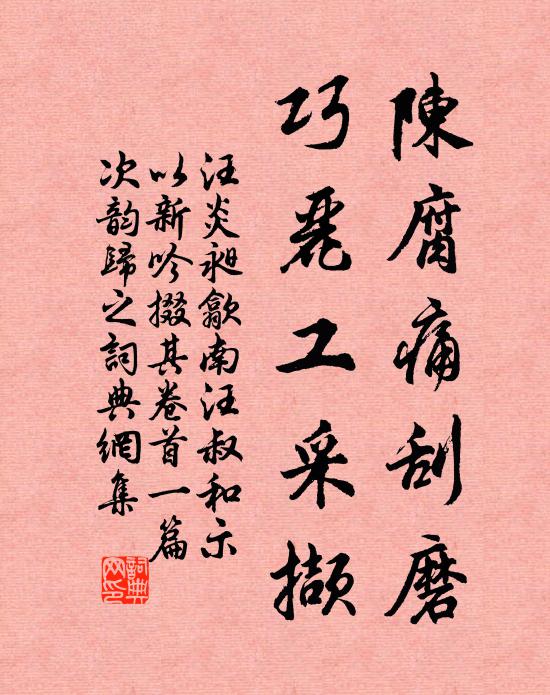 陳腐痛刮磨
巧麗工采擷
汪炎昶歙南汪叔和示
以新吟掇其卷首一篇
次韵歸之詞典網集
詞典
网印